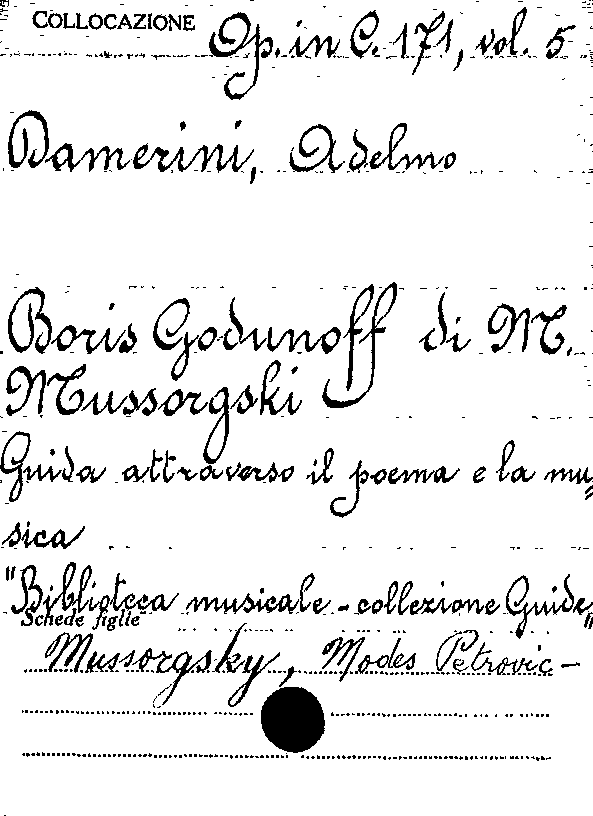 COLLOCAZIONE Op. in C. 171, vol. 5
Damerini, Adelmo
Boris Godunoff di M.
Mussorgski
Guida attraverso il poema e la mu=
sica
"Biblioteca musicale - collezione Guide"
Schede figlie
Mussorgsky, Modes Petrovic -